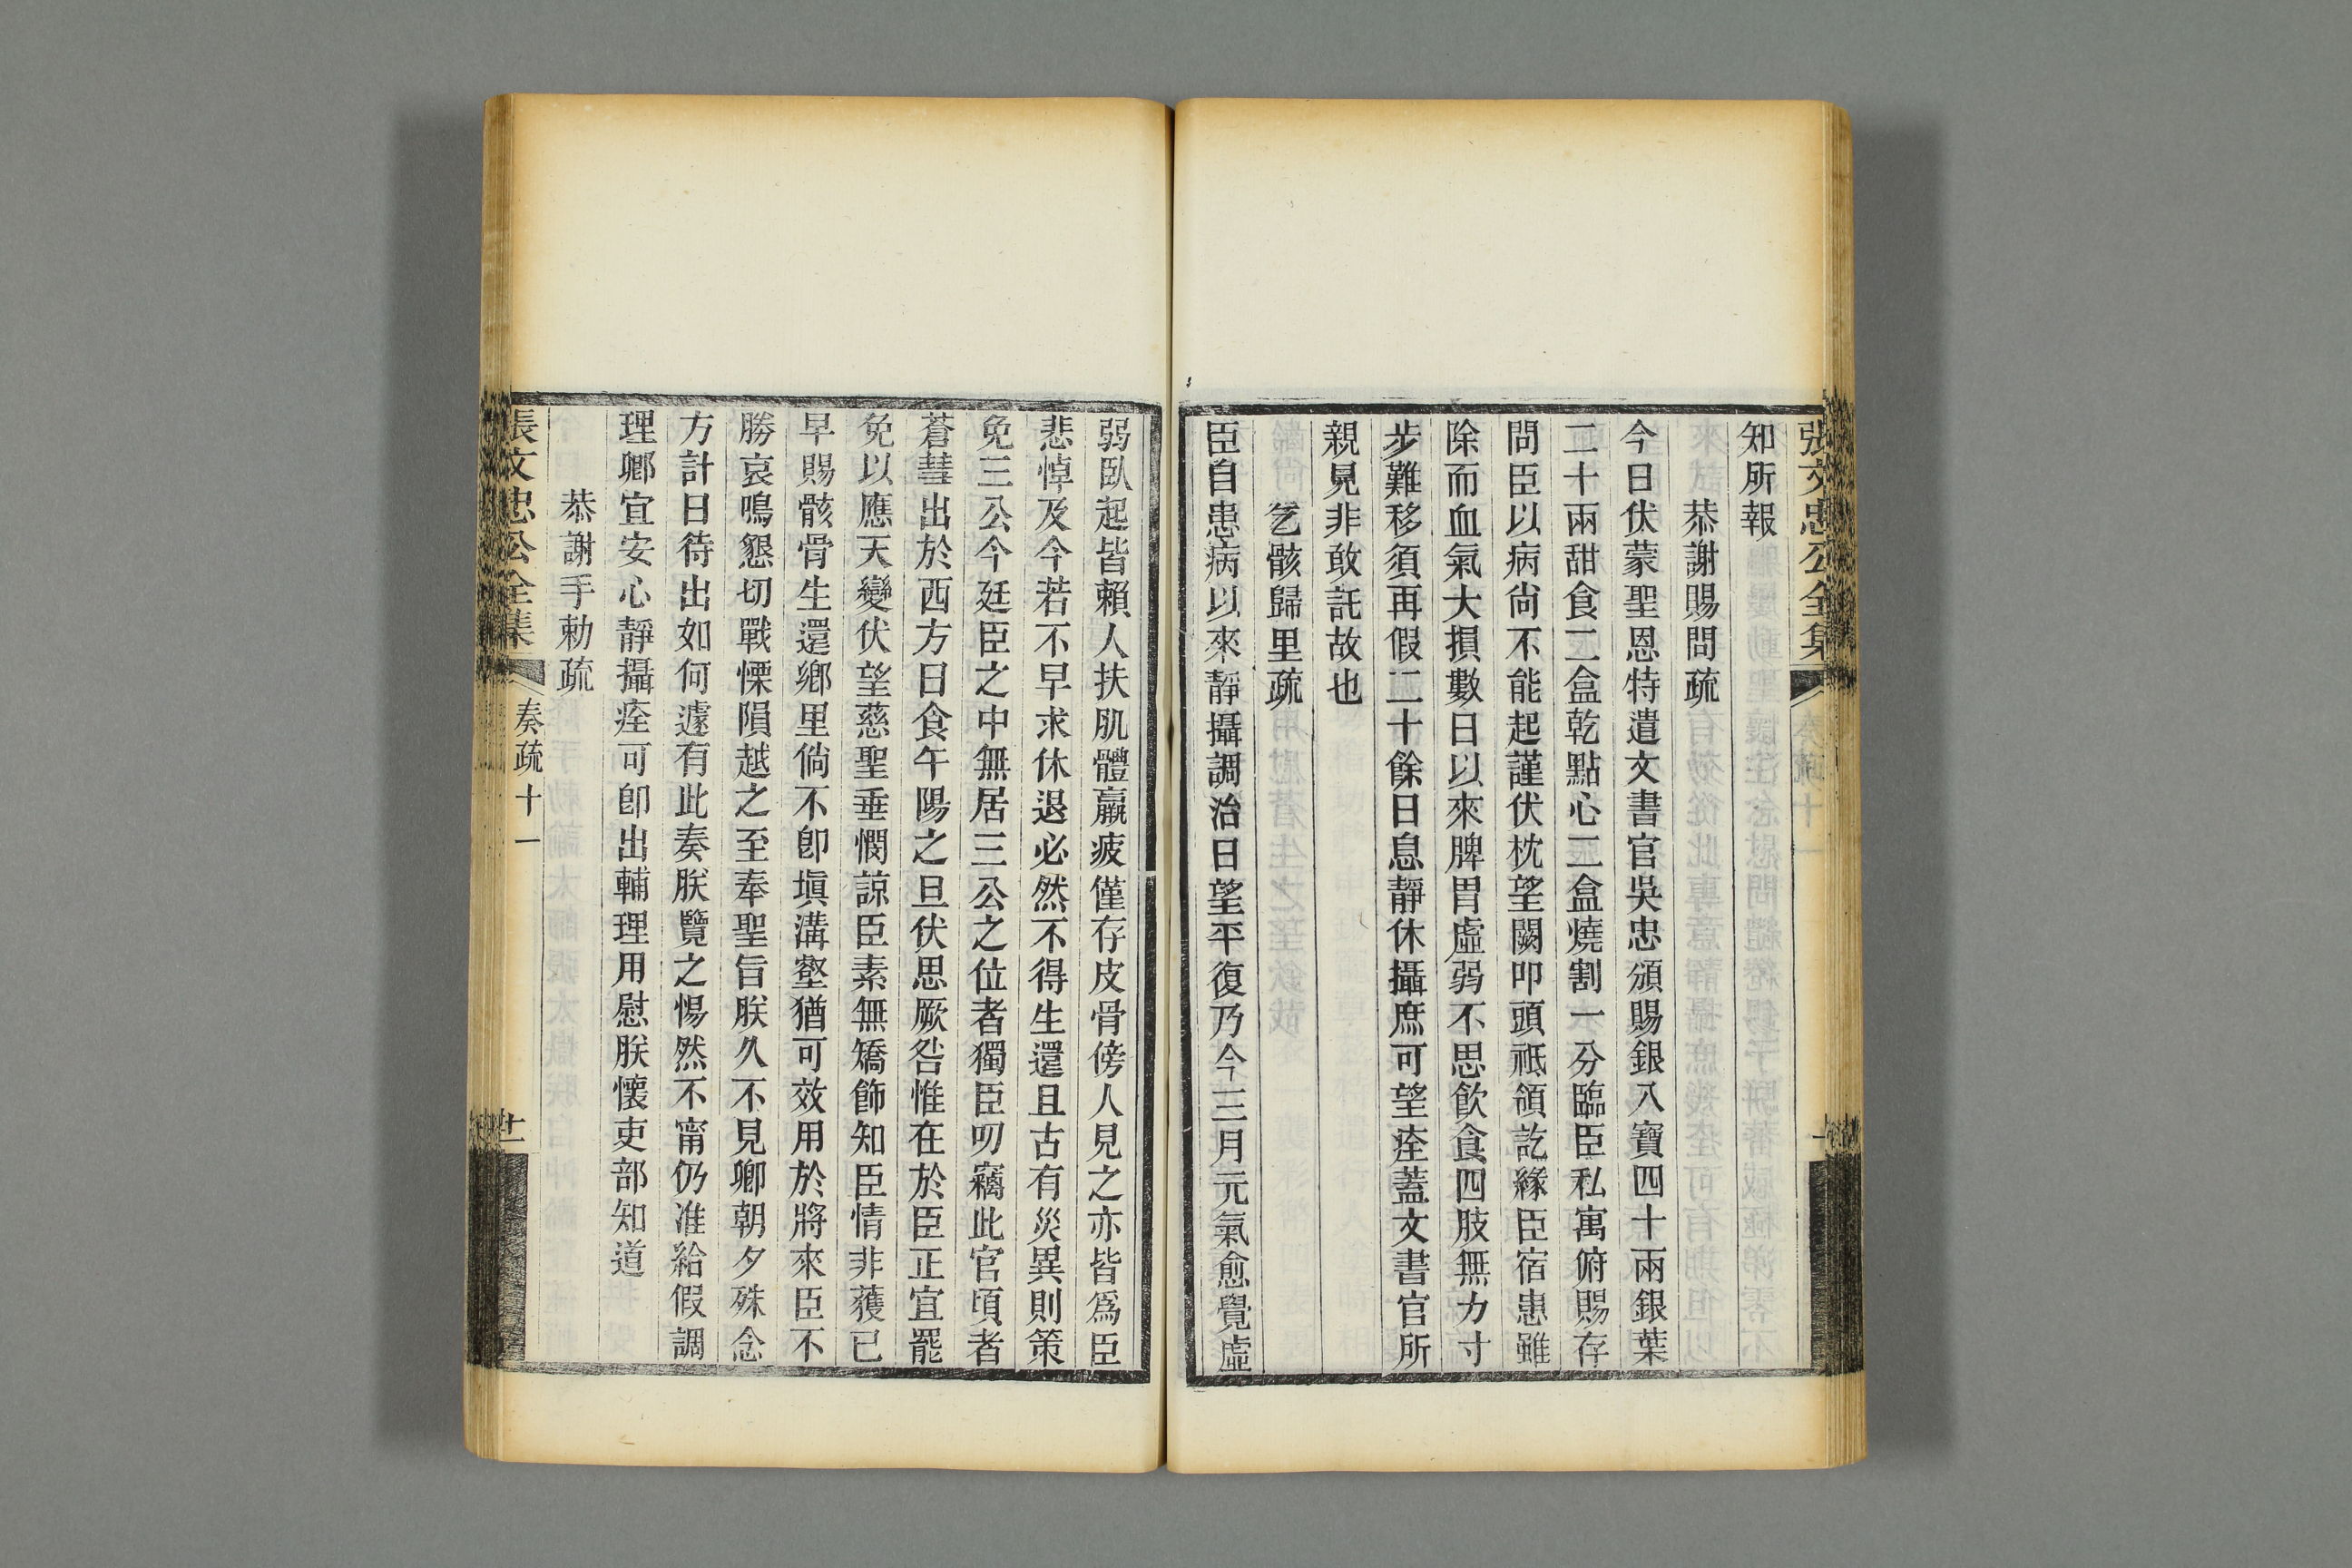 張文忠公全集
知所報
恭謝賜問疏
今日伏蒙聖恩特遣文書官吳忠頒賜銀八寶四十兩銀葉
二十兩甜食二盒乾點心二盒燒割一分臨臣私寓俯賜存
問臣以病尙不能起謹伏枕望闕叩頭祗領訖緣臣宿患雖
除而血氣大損數日以來脾胃虛弱不思飮食四肢無力寸
步難移須再假二十餘日息靜休攝庶可望痊蓋文書官所
親見非敢託故也
乞骸歸里疏
臣自患病以來靜攝調治日望平復乃今三月元氣愈覺虛
弱臥起皆賴人扶肌體羸疲僅存皮骨傍人見之亦皆爲臣
悲悼及今若不早求休退必然不得生還且古有災異則策
免三公今廷臣之中無居三公之位者獨臣叨竊此官頃者
蒼彗出於西方日食午陽之旦伏思厥咎惟在於臣正宜罷
免以應天變伏望慈聖垂憫諒臣素無矯飾知臣情非獲已
早賜骸骨生還鄉里倘不卽塡溝壑猶可效用於將來臣不
勝哀鳴懇切戰慄隕越之至奉聖旨朕久不見卿朝夕殊念
方計日待出如何遽有此奏朕覽之惕然不甯仍准給假調
理卿宜安心靜攝痊可卽出輔理用慰朕懷吏部知道
恭謝手勅疏
張文忠公全集 奏疏十一 廿一